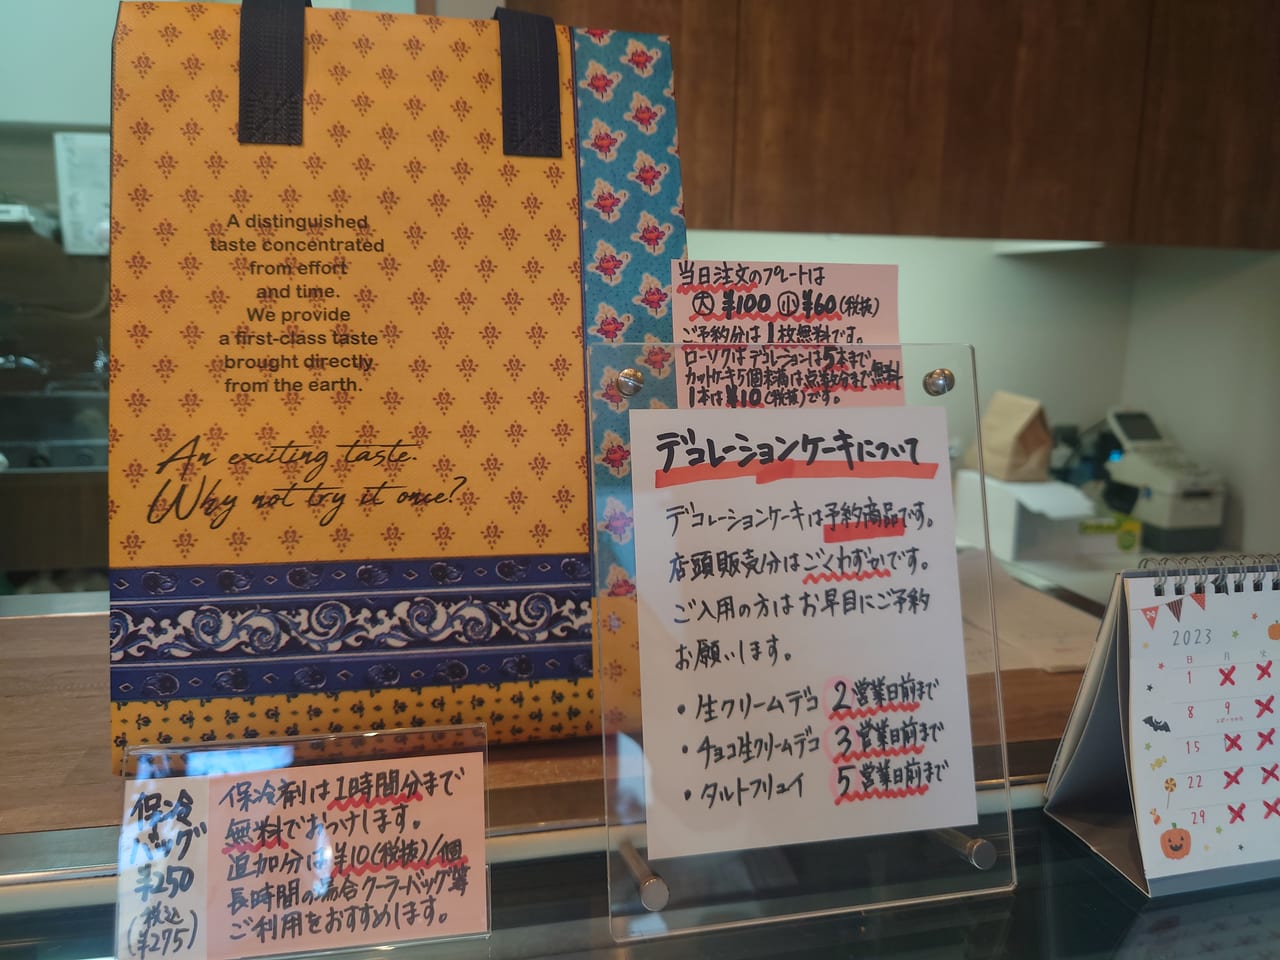 A distinguished
taste concentrated
from effort
and time.
We provide
a first-class taste
brought directly
from the earth.
An exciting taste.
Why not try it once?
当日注文のプレートは
大 ¥100 小 ¥60(税抜)
ご予約分は1枚無料です。
ローソクはデコレーションは5本まで
カットケーキ5個未満は点数分まで無料
1本は¥10(税抜)です。
デコレーションケーキについて
デコレーションケーキは予約商品です。
店頭販売分はごくわずかです。
ご入用の方はお早目にご予約
お願いします。
・生クリームデコ 2営業日前まで
・チョコ生クリームデコ 3営業日前まで
・タルトフリュイ 5営業日前まで
保冷
バッグ
¥250
(税込
¥275)
保冷剤は1時間分まで
無料でおつけします。
追加分は¥10(税抜)/個
長時間の場合クーラーバッグ等
ご利用をおすすめします。
2023
日 月 火
1
8 9
15
22
29